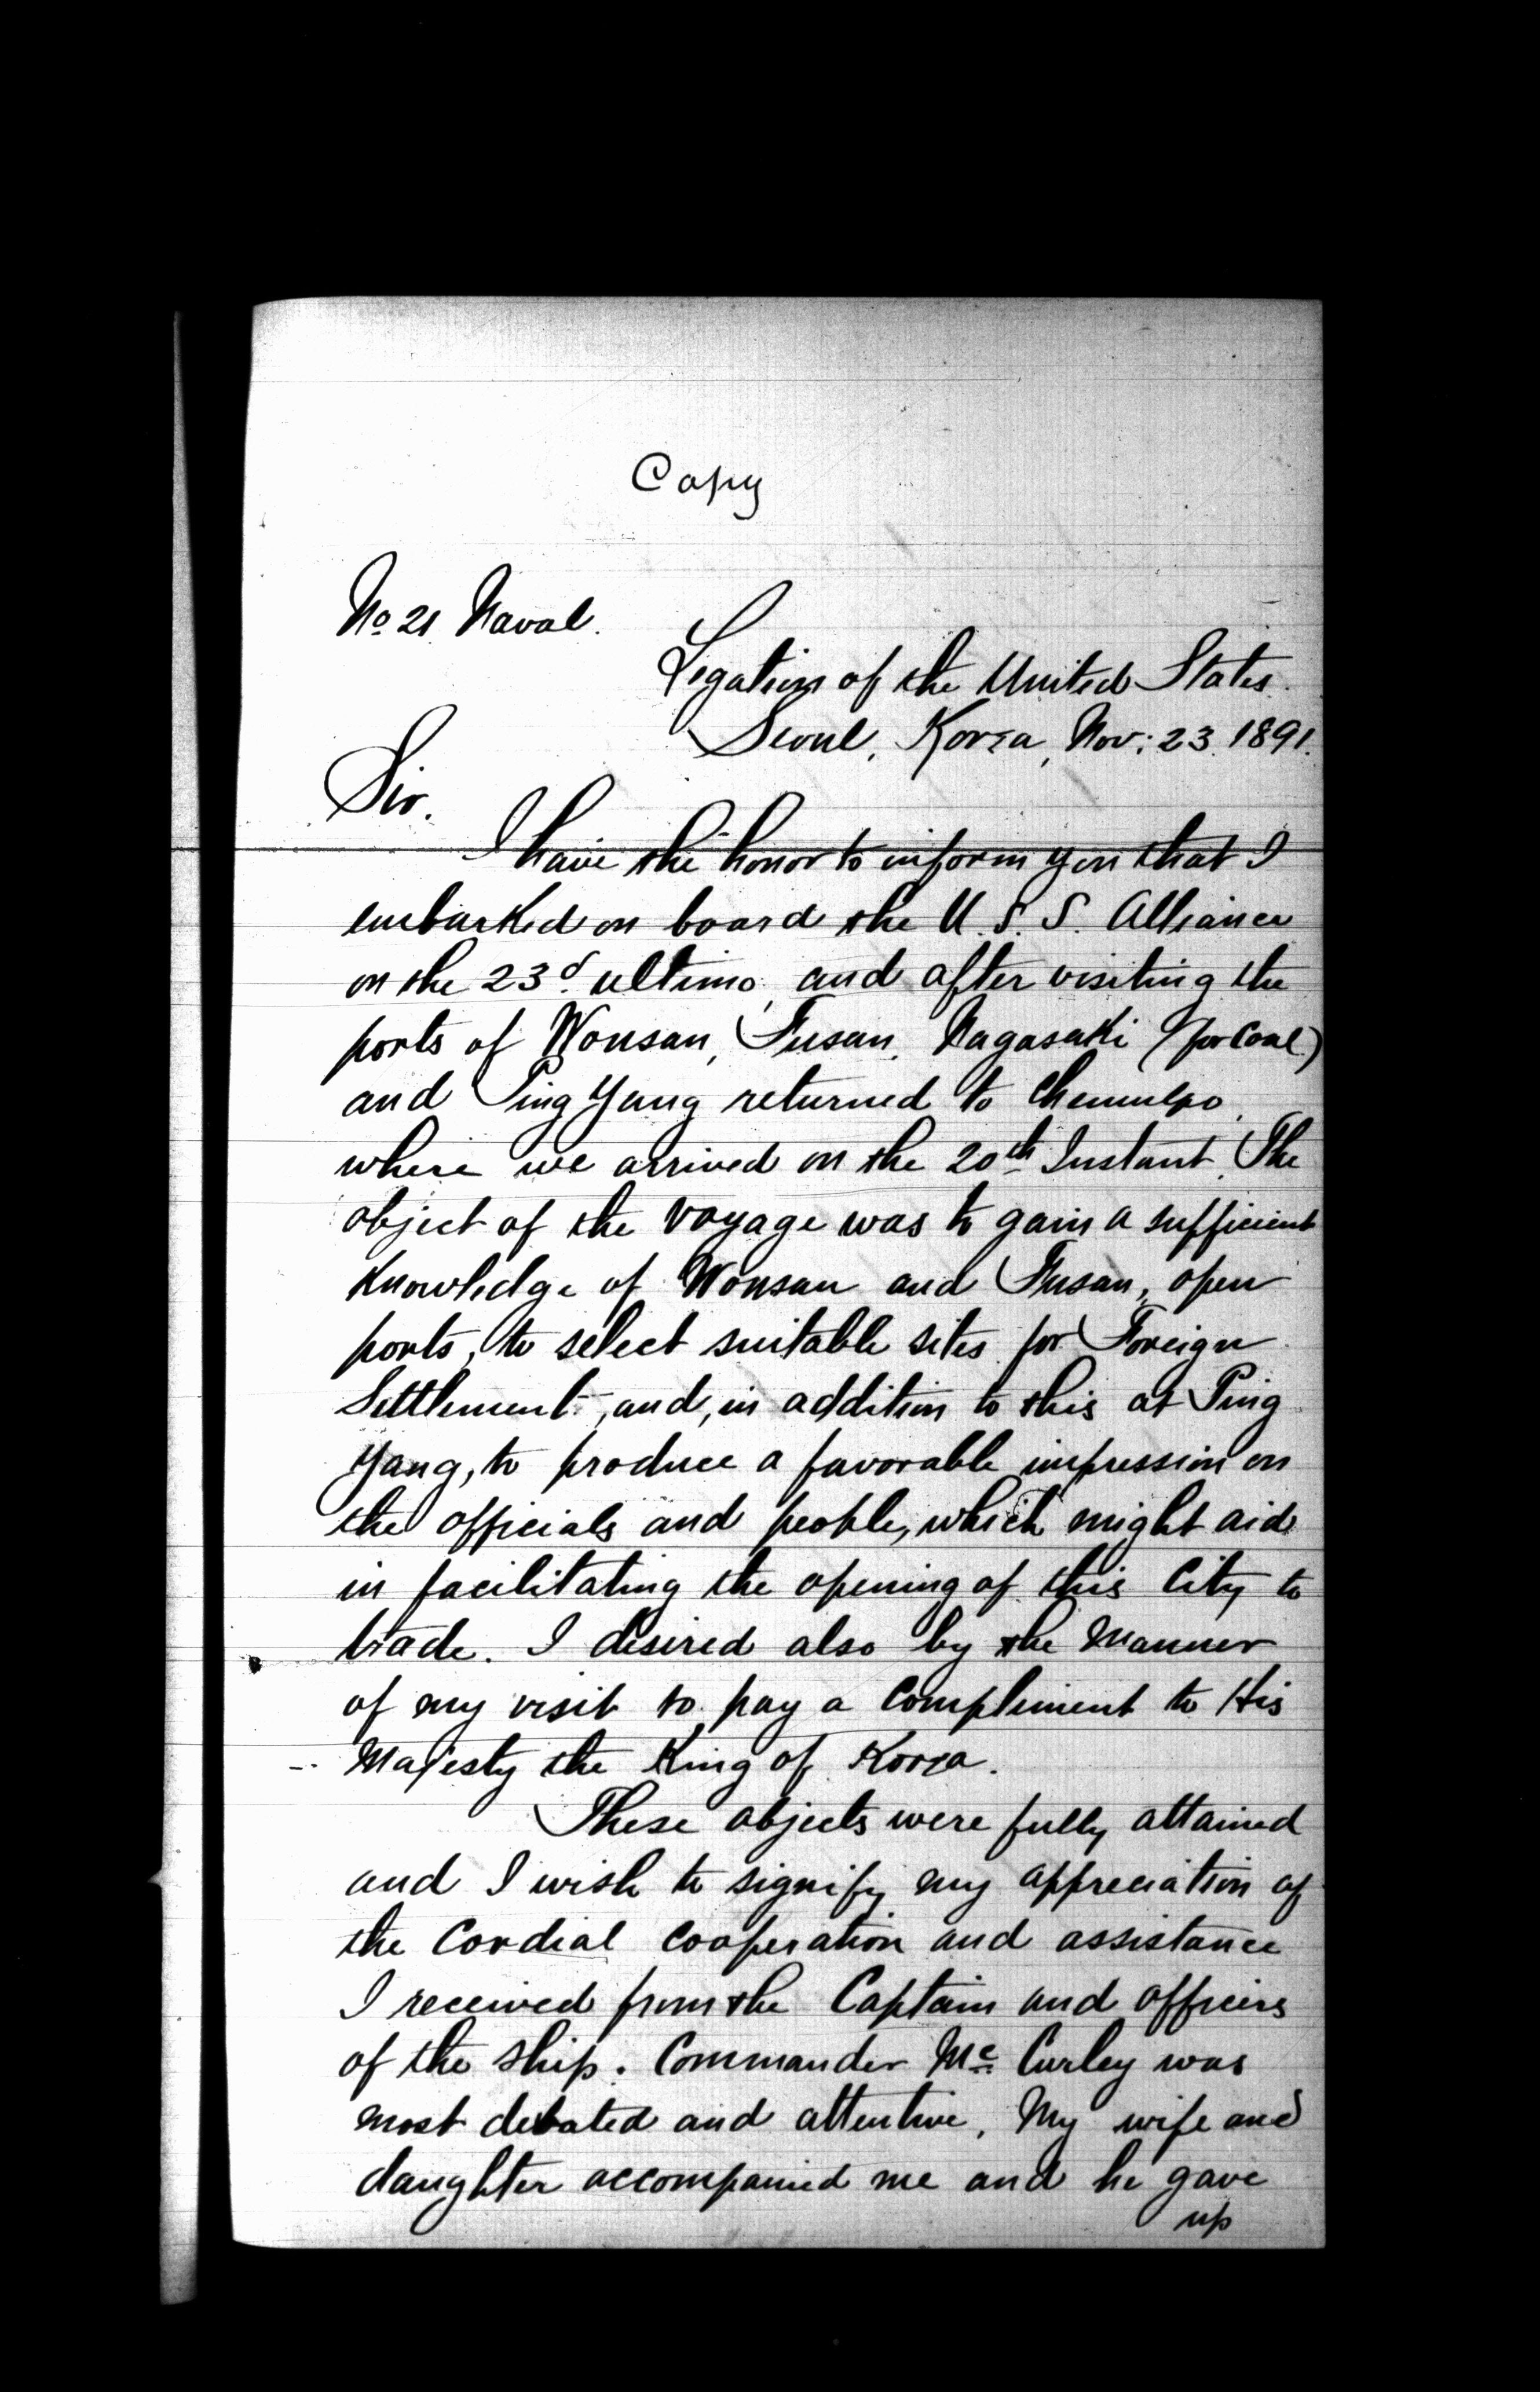 Copy
No 21 Naval.
Legation of the United States.
Seoul, Korea, Nov: 23. 1891.
Sir.
I have the honor to inform you that I
embarked on board the U.S.S. Alliance
on the 23d. ultimo, and after visiting the
ports of Wonsan, Fusan, Nagasaki (for Coal)
and Ping Yang returned to Chemulpo,
where we arrived on the 20th Instant. The
object of the voyage was to gain a sufficient
knowledge of Wonsan and Fusan, open
ports, to select suitable sites for Foreign
Settlement, and, in addition to this at Ping
Yang, to produce a favorable impression on
the officials and people, which might aid
in facilitating the opening of this City to
trade. I desired also by the manner
of my visit to pay a compliment to His
Majesty the King of Korea.
These objects were fully attained
and I wish to signify my appreciation of
the Cordial cooperation and assistance
I received from the Captain and officers
of the ship. Commander Mc Curley was
most devoted and attentive. My wife and
daughter accompanied me and he gave
up